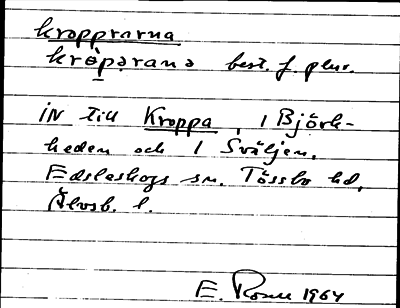 kropprarna
kråparana best. f. plur.
IN till Kroppa, 1 Björk-
heden och 1 Sväljen,
Edsleskogs sn. Tössbo hd,
Älvsb. l.
E. 1964